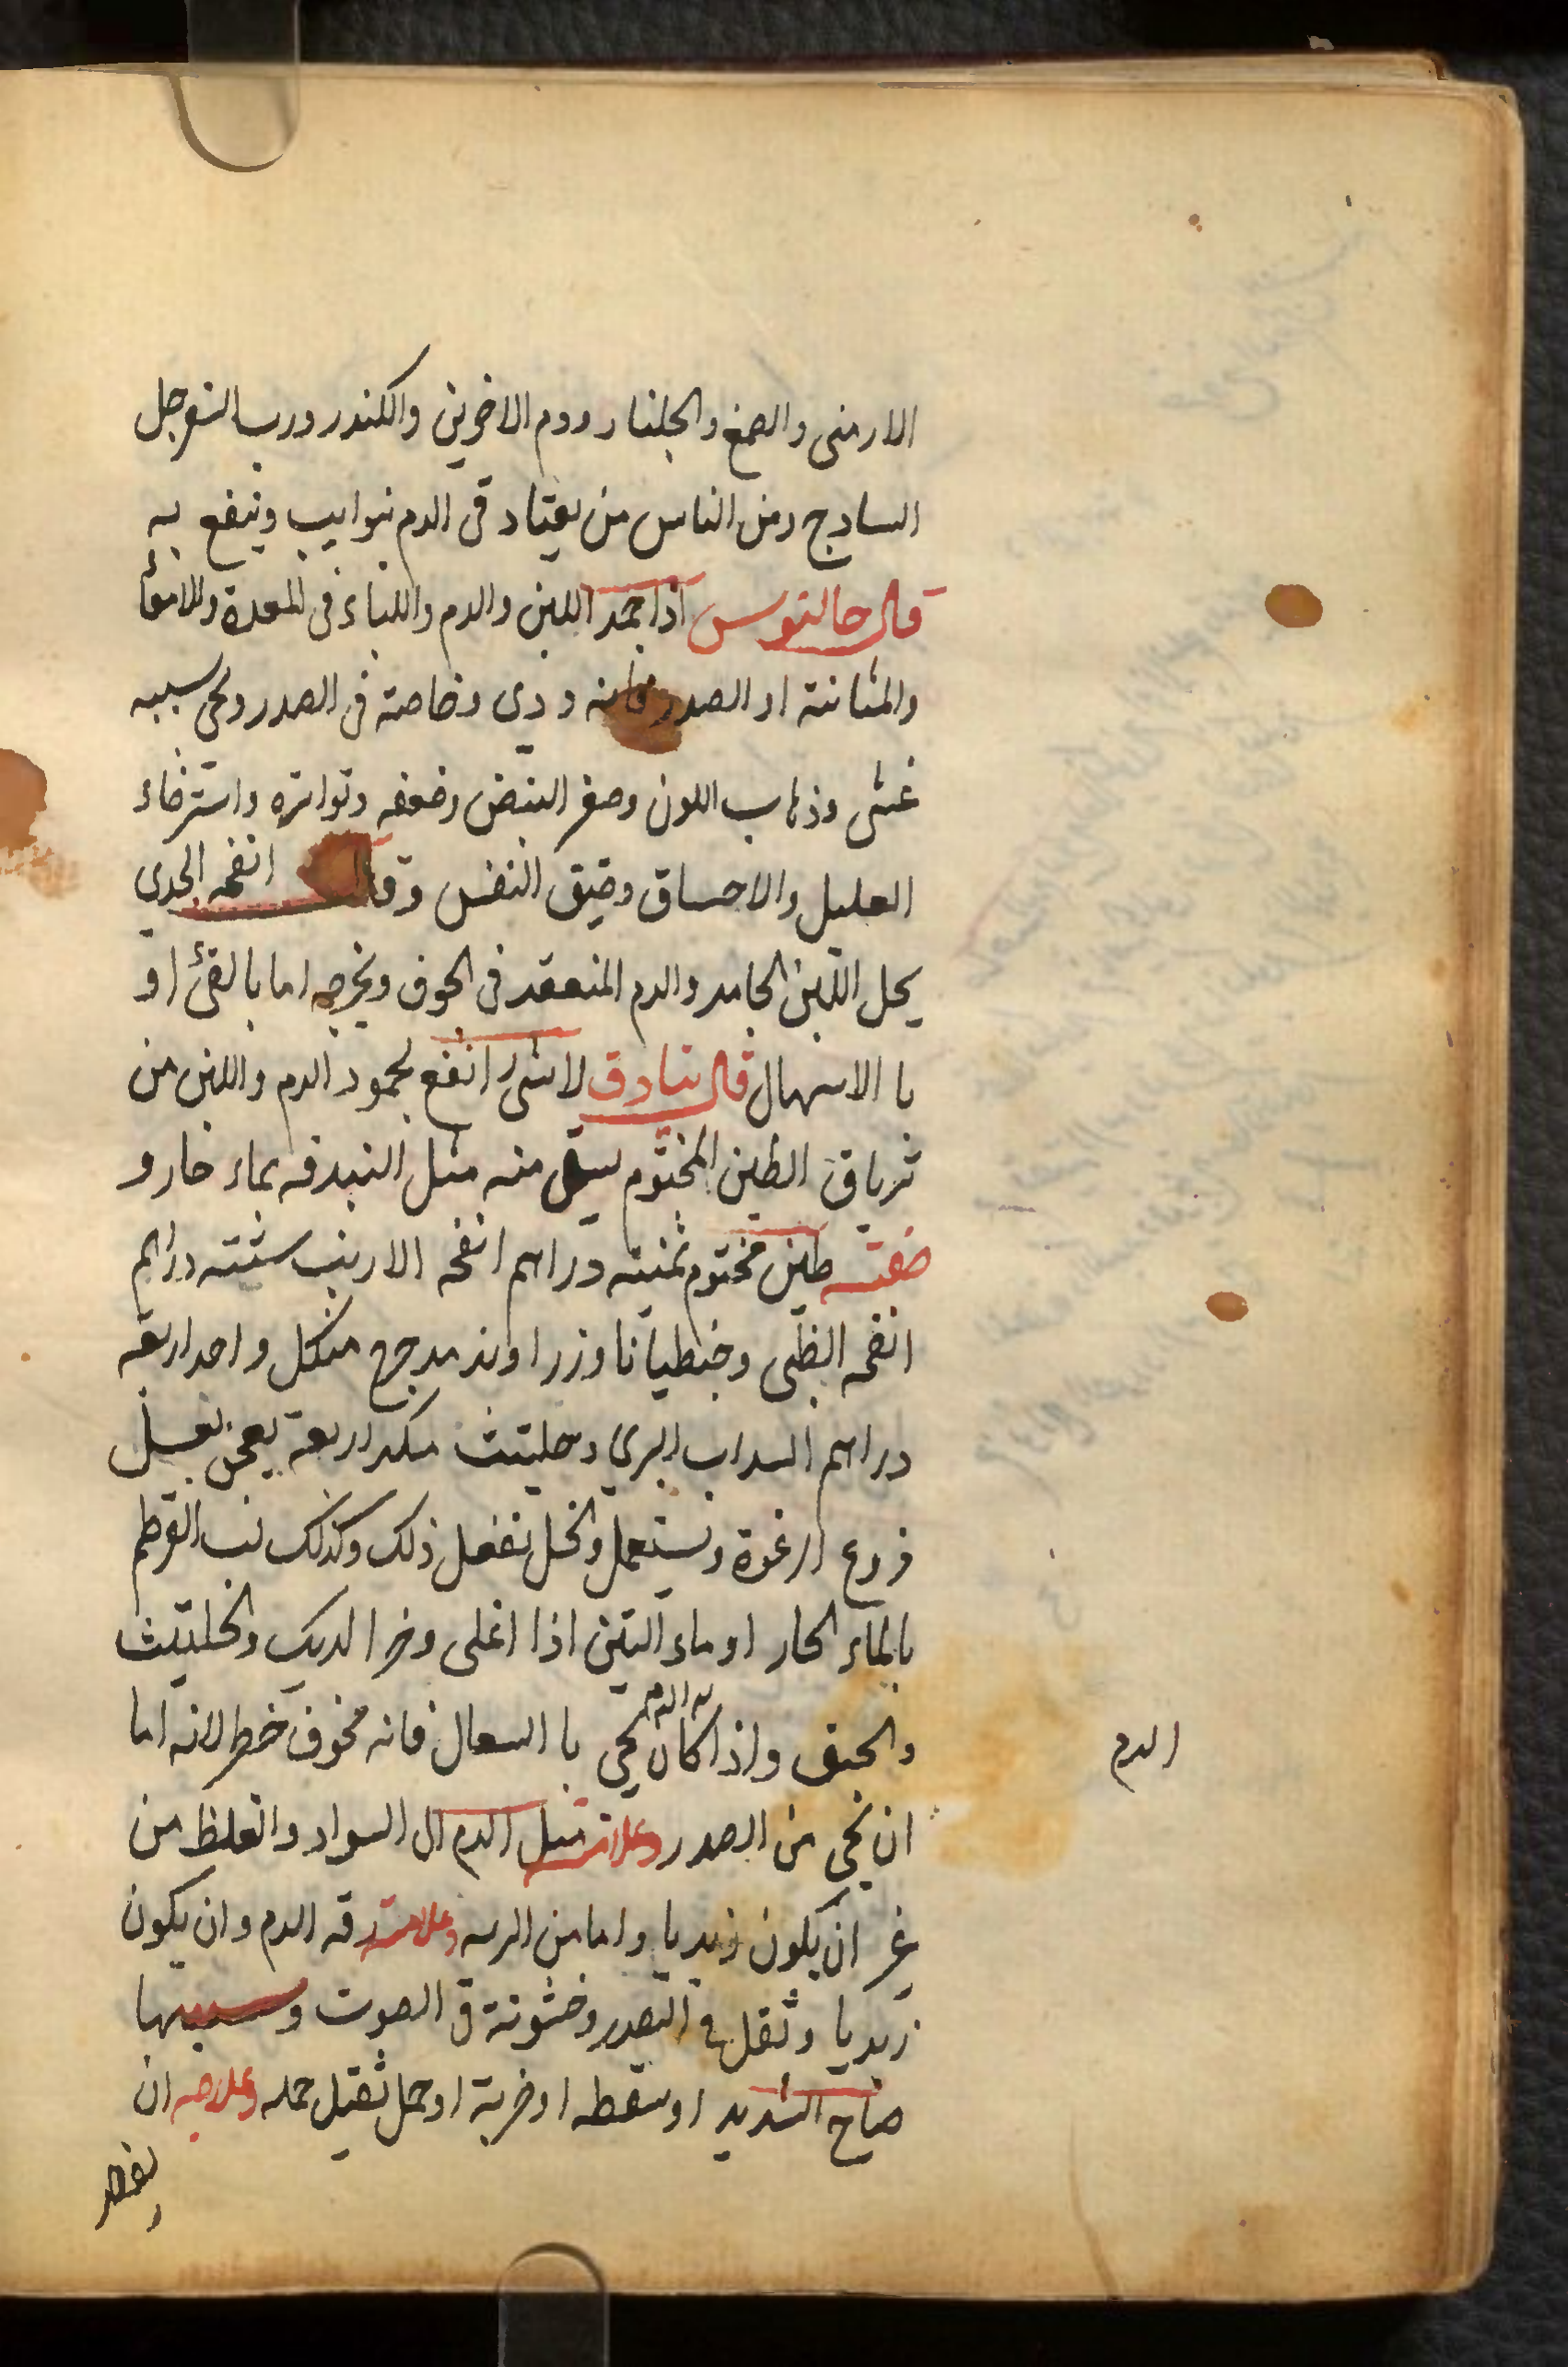 الارمنى والصمغ والجلنار ودم الاخوين والكندر ورب السفرجل
الساذج ومن الناس من يعتاد قى الدم بنوايب وينفع به
قال جالنوس اذا جمد اللبن والدم واللباء فى المعدة والامعا
والمثانة او الصدر فانه ردى وخاصة فى الصدر ويجى سببه
غشى وذهاب اللون وصغر النبض وضعفه وتواتره واسترخاء
العليل والاحساق وضيق النفس وقال انفحه الجدي
يحل اللبن الجامد والدم المنعقد فى الجوف ويخرجه اما بالقئ او
با الاسهال قال تيادق لا شئ انفع لجمود الدم واللبن من
ترياق الطين المختوم يسقى منه مثل البندقه بماء حار و
صفته طين مختوم ثمنيه دراهم انفحه الارنب ستته دراهم
انفحه الظبى وجنطيانا وزراوند مدحرج من كل واحد اربعه
دراهم السداب البري وحلتيت مكد اربعة يعجن بعسل
منزوع الرغوة ويستعمل والخل يفعل ذلك وكذلك لب القرطم
بالماء الحار او ماء التين اذا اغلى وخرا الديك والحلتيت
والحبق واذا كان الدم يجى با السعال فانه مخوف خطر لانه اما
الدم
ان يجى من الصدر وعلامته ميل الدم الى السواد والغلظ من
غير ان يكون زبديا واما من الريه وعلامته رقه الدم وان يكون
زبديا وثقل فى الصدر وخشونة فى الصوت وسببها
صياح الشديد او سقطه او ضربة او حمل ثقيل حمله وعلاجه ان
يفصد